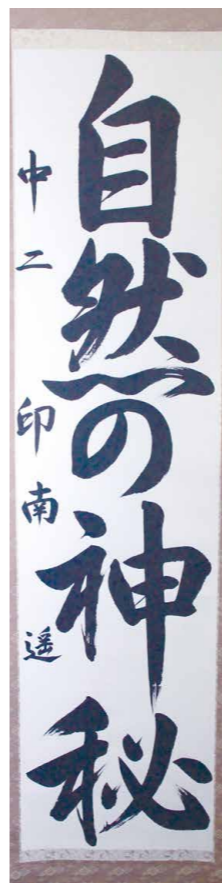 自然の神秘
中二 印南 遥